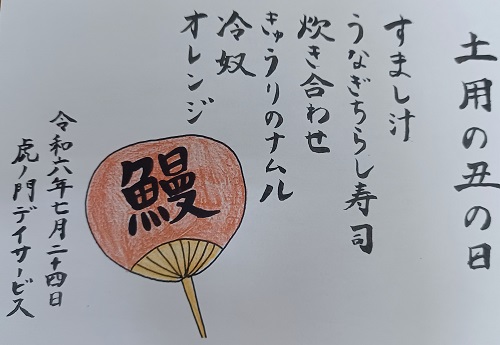 土用の丑の日
すまし汁
うなぎちらし寿司
炊き合わせ
きゅうりのナムル
冷奴
オレンジ
鰻
令和六年七月二十四日
虎ノ門デイサービス